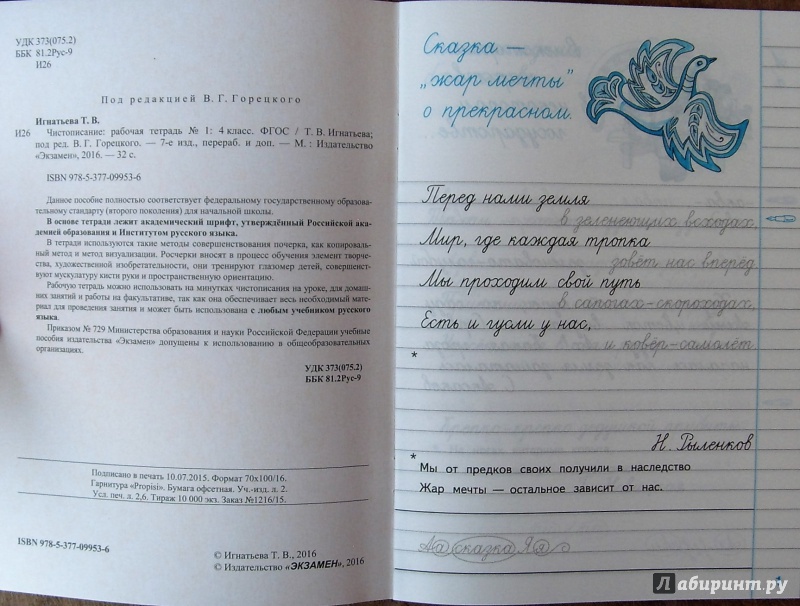 УДК 373(075.2)
ББК 81.2Рус-9
И26
Под редакцией В. Г. Горецкого
Игнатьева Т. В.
И26 Чистописание: рабочая тетрадь № 1: 4 класс. ФГОС / Т. В. Игнатьева;
под ред. В. Г. Горецкого. — 7-е изд., перераб. и доп. — М. : Издательство
«Экзамен», 2016. — 32 с.
ISBN 978-5-377-09953-6
Данное пособие полностью соответствует федеральному государственному образова-
тельному стандарту (второго поколения) для начальной школы.
В основе тетради лежит академический шрифт, утверждённый Российской ака-
демией образования и Институтом русского языка.
В тетради используются такие методы совершенствования почерка, как копироваль-
ный метод и метод визуализации. Росчерки вносят в процесс обучения элемент творче-
ства, художественной изобретательности, они тренируют глазомер детей, совершенст-
вуют мускулатуру кисти руки и пространственную ориентацию.
Рабочую тетрадь можно использовать на минутках чистописания на уроке, для домаш-
них занятий и работы на факультативе, так как она обеспечивает весь необходимый мате-
риал для проведения занятия и может быть использована с любым учебником русского
языка.
Приказом № 729 Министерства образования и науки Российской Федерации учебные
пособия издательства «Экзамен» допущены к использованию в общеобразовательных
организациях.
УДК 373(075.2)
ББК 81.2Рус-9
Подписано в печать 10.07.2015. Формат 70х100/16.
Гарнитура «Propisi». Бумага офсетная. Уч.-изд. л. 2.
Усл. печ. л. 2,6. Тираж 10 000 экз. Заказ №1216/15.
ISBN 978-5-377-09953-6
© Игнатьева Т. В., 2016
© Издательство «ЭКЗАМЕН», 2016
Сказка —
„жар мечты"
о прекрасном.
Перед нами земля
в зеленеющих всходах,
Мир, где каждая тропка
зовёт нас вперёд.
Мы проходим свой путь
в сапогах-скороходах,
Есть и гусли у нас,
и ковёр-самолёт.
*
Н. Рыленков
*
Мы от предков своих получили в наследство
Жар мечты — остальное зависит от нас.
Аа сказка Яя
1
Лабиринт.ру